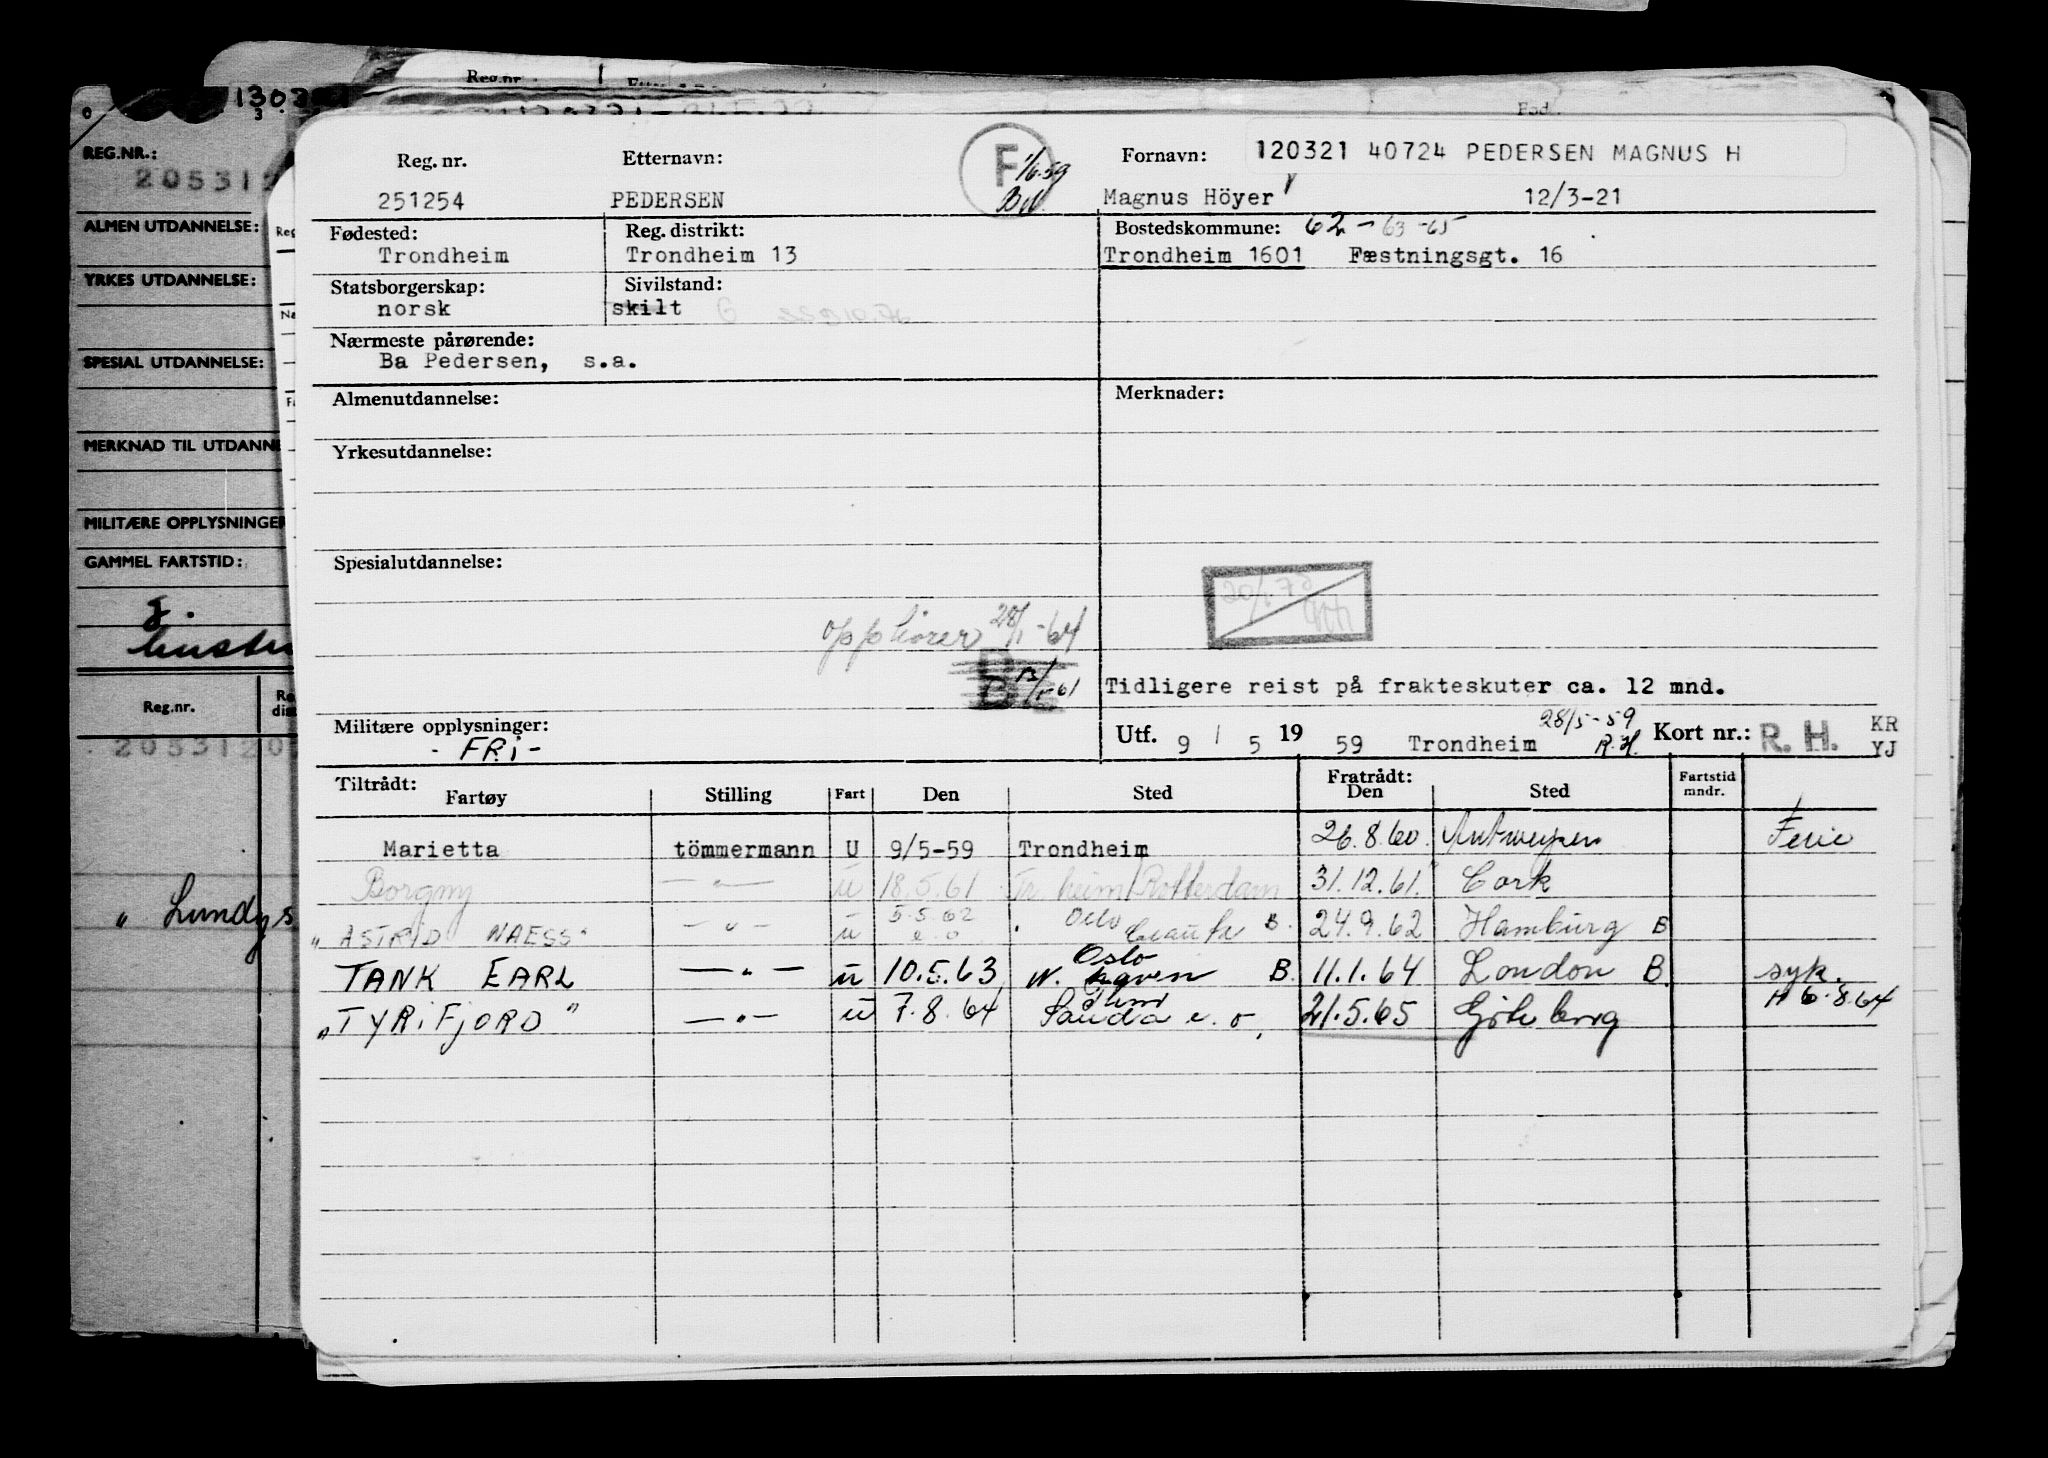 Reg.nr.
130321
REG.NR.:
205312
ALMEN UTDANNELSE:
YRKES UTDANNELSE:
SPESIAL UTDANNELSE:
MERKNAD TIL UTDANNE
MILITÆRE OPPLYSNINGER
GAMMEL FARTSTID:
Reg.nr.
2053120
" Lundys
Reg. nr. Etternavn: F 1/6.59 Fornavn: 120321 40724 PEDERSEN MAGNUS H
251254 PEDERSEN Magnus Höyer 12/3-21
Fødested: Reg. distrikt: Bostedskommune: 62 - 63 - 65
Trondheim Trondheim 13 Trondheim 1601 Fæstningsgt. 16
Statsborgerskap: Sivilstand:
norsk skilt G
Nærmeste pårørende:
Ba Pedersen, s.a.
Almenutdannelse: Merknader:
Yrkesutdannelse:
Spesialutdannelse:
opphører 28/1-64
Tidligere reist på frakteskuter ca. 12 mnd.
Militære opplysninger: Utf. 9 / 5 19 59 Trondheim 28/5-59 R.H. Kort nr.: R. H. KR YJ
- FRi -
Tiltrådt: Fratrådt: Fartstid
Fartøy Stilling Fart Den Sted Den Sted mndr.
Marietta tömmermann U 9/5-59 Trondheim 26.8.60 Antwerpen Ferie
Borgny — " — U 18.5.61 Tr.heim/Rotterdam 31.12.61 Cork
"ASTRID NAESS" - " - U 5.5.62 Oslo B. 24.9.62 Hamburg B
TANK EARL — " — U 10.5.63 Oslo W. haven B. 11.1.64 London B. syk.
"TYRiFJORD" — " — U 7.8.64 Sauda e. o. 21.5.65 Göteborg H 6.8.64